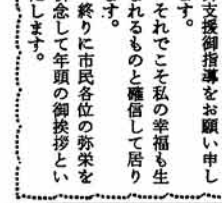 支援御指導をお願い申し
す。
それでこそ私の幸福も生
れるものと確信して居り
す。
終りに市民各位の弥栄を
念して年頭の御挨拶とい
します。